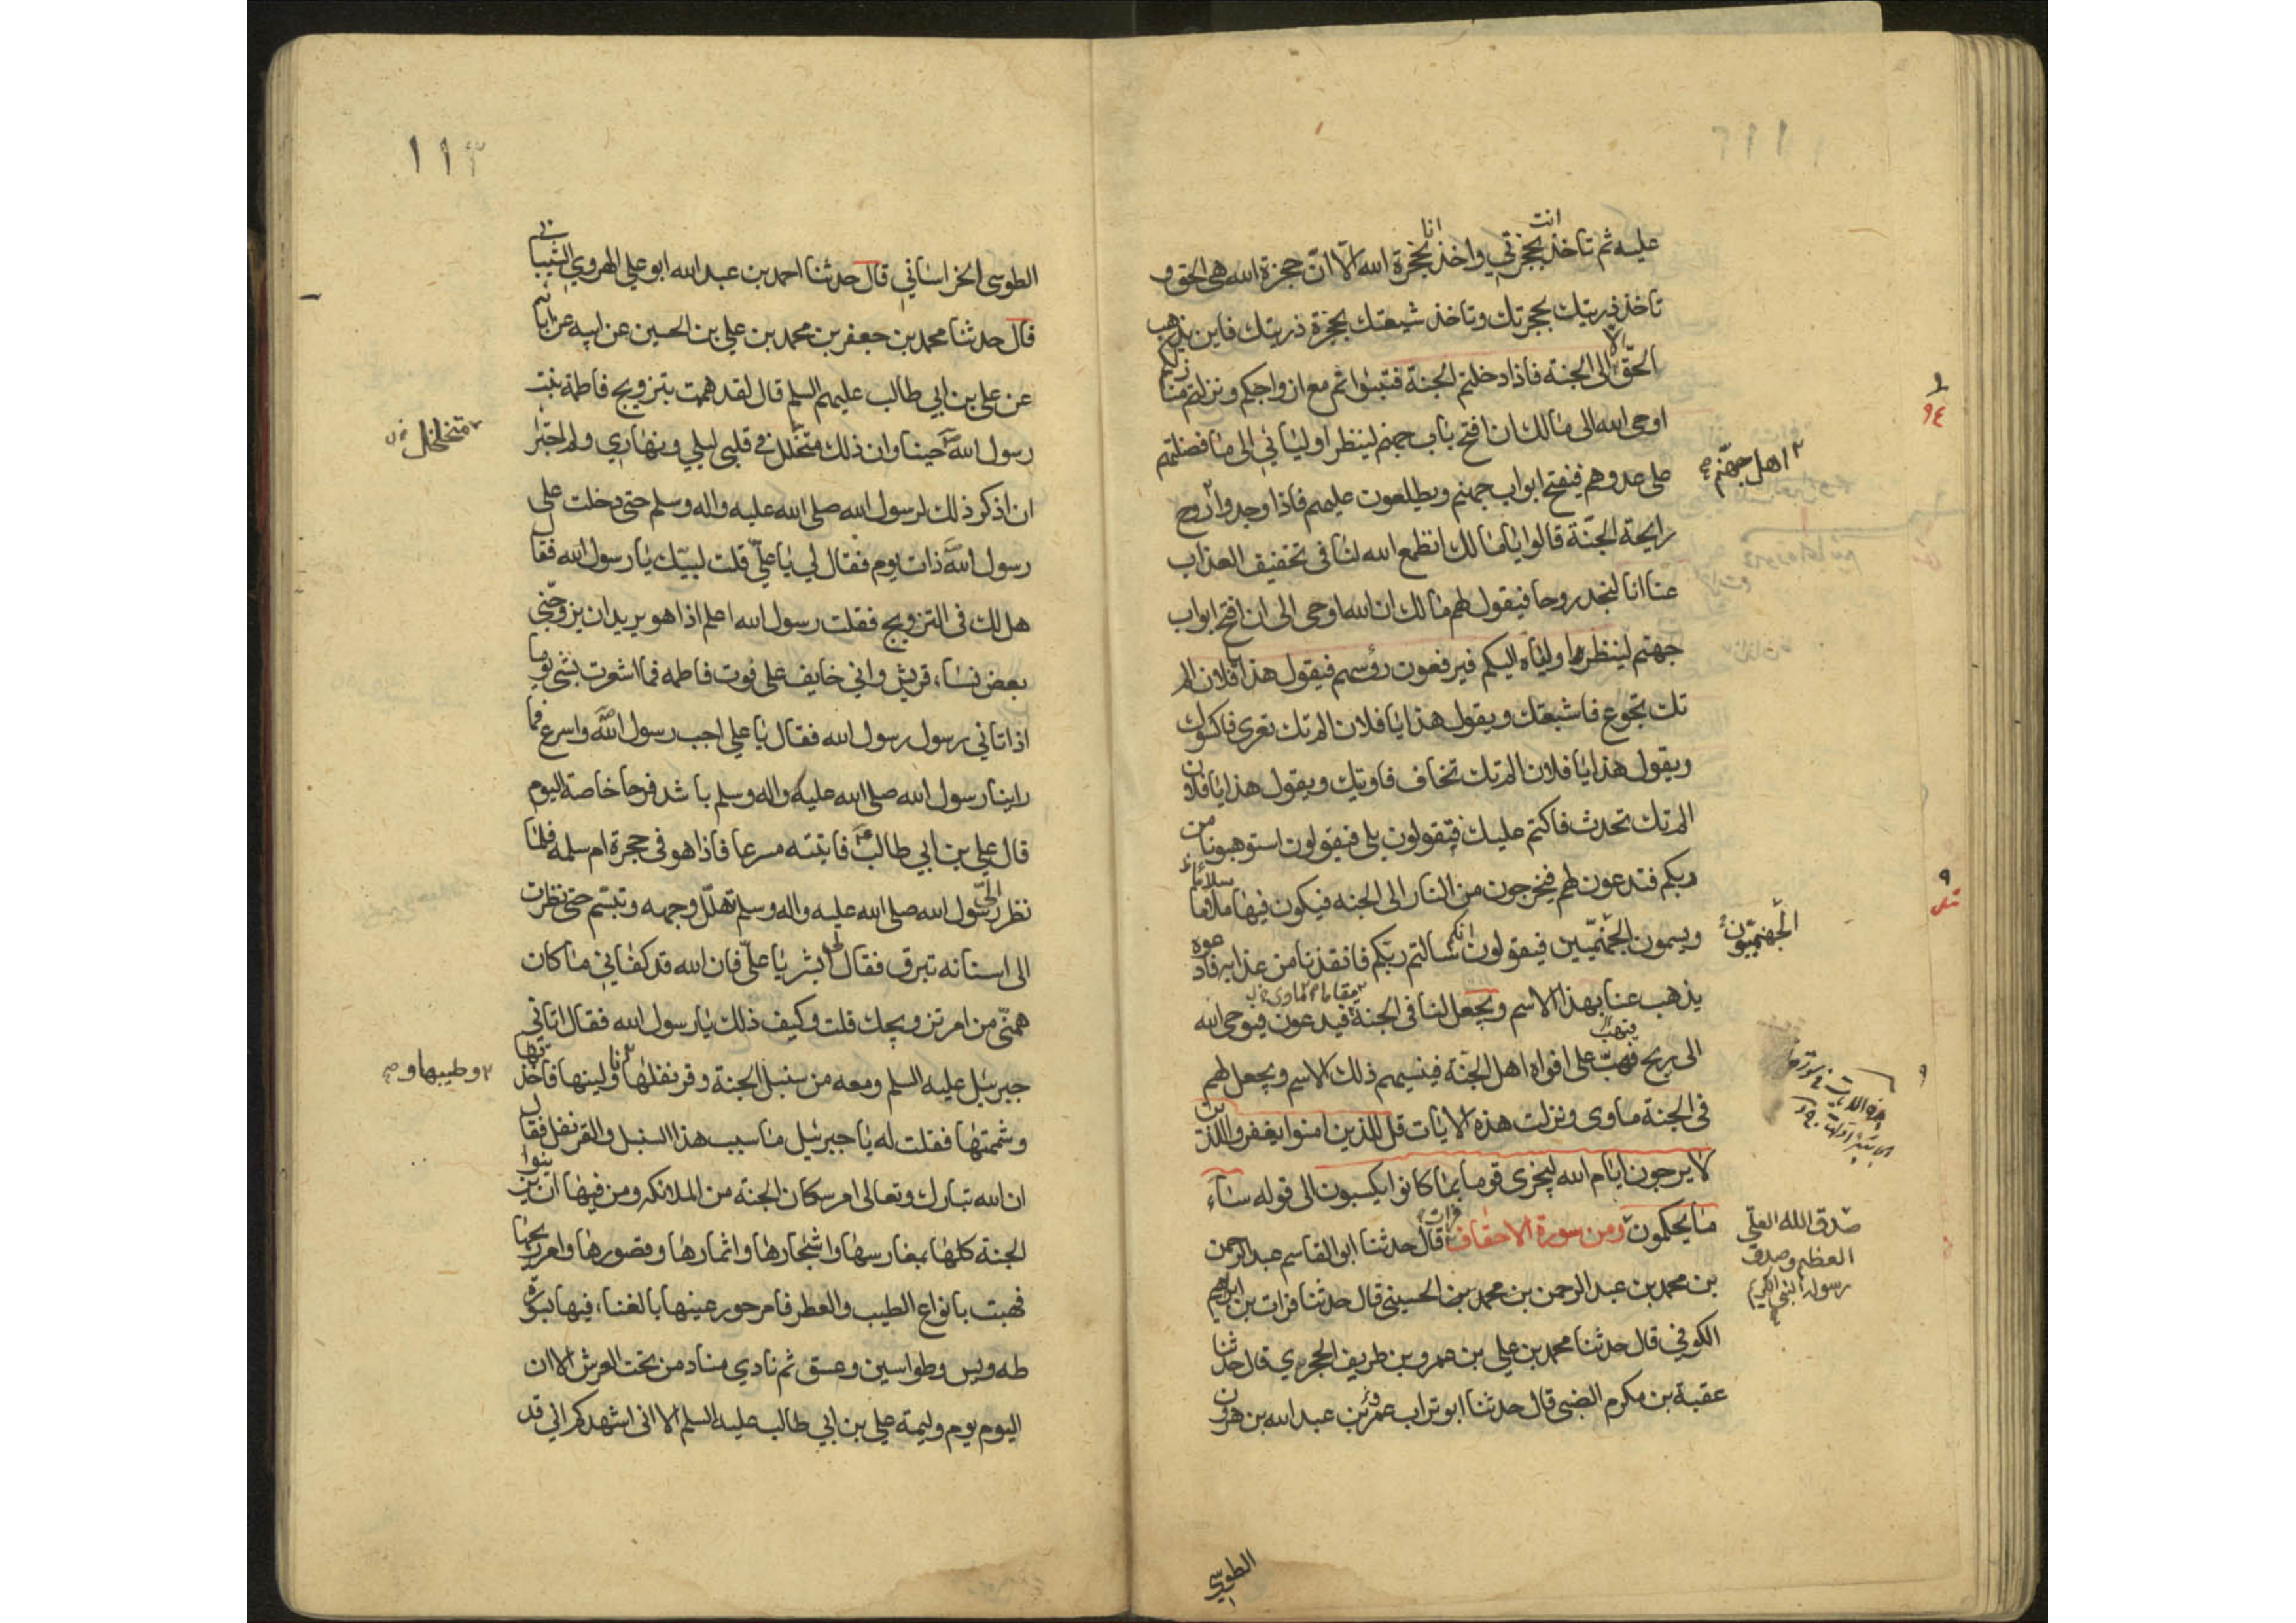 عليه ثم تاخذ انت بحجزتي واخذ انا بحجزة الله الا ان حجزة الله هي الحق و
تاخذ ذريتك بحجزتك وتاخذ شيعتك بحجزة ذريتك فاين يذهب
الحق الا الى الجنة فاذا دخلتم الجنة فتبوأتم مع ازواجكم ونزلتم منازلكم
اوحى الله الى مالك ان افتح باب جهنم لينظر اوليائي الى ما فضلتهم
على عدوهم فيفتح ابواب جهنم ويطلعون عليهم فاذا وجدوا روح
اهل جهنم
رايحة الجنة قالوا يا مالك انطمع الله لنا في تخفيف العذاب
عنا انا لنجد روحا فيقول لهم مالك ان الله اوحى الى ان افتح ابواب
جهنم لينظر اولياه اليكم فيرفعون رؤسهم فيقول هذا يا فلان الم
تك تجوع فاشبعتك ويقول هذا يا فلان الم تك تعرى فاكسوك
ويقول هذا يا فلان الم تك تخاف فاويتك ويقول هذا يا فلان
الم تك تحدث فاكتم عليك فيقولون بلى فيقولون استوهبونا من
ربكم فتدعون لهم فيخرجون من النار الى الجنه فيكون فيها
ويسمون الجهنميين فيقولون سالتم ربكم فانقذنا من عذابه فادعوه
الجهنميون
يذهب عنا بهذا الاسم ويجعل لنا في الجنة فيدعون فيوحى الله
الى ريح فتهب على افواه اهل الجنة فينسيهم ذلك الاسم ويجعل لهم
في الجنة ماوى ونزلت هذه الايات قل للذين امنوا يغفروا للذين
لا يرجون ايام الله ليجزى قوما بما كانوا يكسبون الى قوله ساء
ما يحكمون ومن سورة الاحقاف قال حدثنا ابو القاسم عبد الرحمن
صدق الله العلي
العظيم وصدق
رسوله النبي الكريم
بن محمد بن عبد الرحمن بن محمد بن الحسيني قال حدثنا فرات بن ابراهيم
الكوفي قال حدثنا محمد بن علي بن عمرو بن طريف الحجري قال حدثنا
عقبة بن مكرم الضبي قال حدثنا ابو تراب عمرو بن عبد الله بن هرون
الطوسي
١١٣
الطوسى الخراساني قال حدثنا احمد بن عبد الله ابو علي الهروي الشيباني
قال حدثنا محمد بن جعفر بن محمد بن علي بن الحسين عن ابيه عن ابائهم
عن على بن ابي طالب عليهم السلم قال لقد هممت بتزويج فاطمة بنت
رسول الله حينا وان ذلك متخلل في قلبي ليلي ونهاري ولم اجتر
متخلخل
ان اذكر ذلك لرسول الله صلى الله عليه واله وسلم حتى دخلت على
رسول الله ذات يوم فقال لي يا علي قلت لبيك يا رسول الله فقال
هل لك في التزويج فقلت رسول الله اعلم اذا هو يريد ان يزوجني
بعض نساء قريش واني خايف على فوت فاطمه فما اشعرت بشي يوما
اذ اتاني رسول رسول الله فقال يا علي اجب رسول الله واسرع فما
راينا رسول الله صلى الله عليه واله وسلم باشد فرحا خاصة اليوم
قال علي بن ابي طالب فاتيته مسرعا فاذا هو في حجرة ام سلمه فلما
نظر الي رسول الله صلى الله عليه واله وسلم تهلل وجهه وتبسم حتى نظرت
الى اسنانه تبرق فقال ابشر يا علي فان الله قد كفاني ما كان
همني من امر تزويجك قلت وكيف ذلك يا رسول الله فقال اتاني
جبرئيل عليه السلم ومعه من سنبل الجنة وقرنفلها ولينها فاخذتها
وطيبها و
وشممتها فقلت له يا جبرئيل ما سبب هذا السنبل والقرنفل فقال
ان الله تبارك وتعالى امر سكان الجنة من الملائكه ومن فيها ان يزينوا
الجنة كلها بمغارسها واشجارها واثمارها وقصورها وامر ريحها
فهبت بانواع الطيب والعطر فامر حور عينها بالغناء فيها بسورة
طه ويس وطواسين وعسق ثم نادي مناد من تحت العرش الا ان
اليوم يوم وليمة علي بن ابي طالب عليه السلم الا اني اشهدكم اني قد